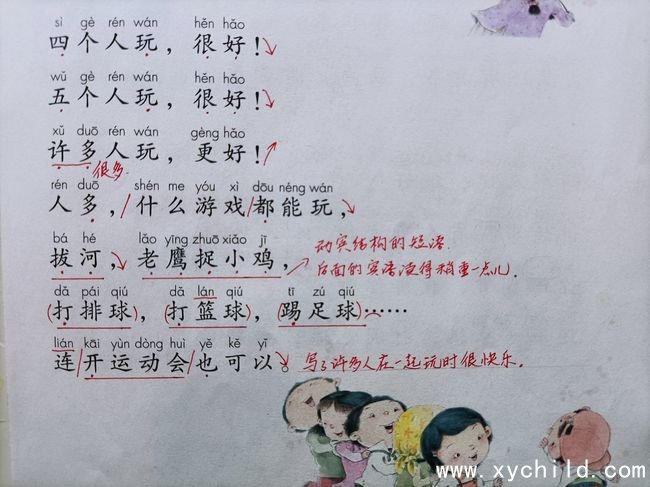 sì gè rén wán hěn hǎo
四个人玩，很好！
wǔ gè rén wán hěn hǎo
五个人玩，很好！
xǔ duō rén wán gèng hǎo
许多人玩，更好！
很多.
rén duō shén me yóu xì dōu néng wán
人多，/什么游戏/都能玩，
bá hé lǎo yīng zhuō xiǎo jī
拔河，老鹰捉小鸡，
动宾结构的短语.
后面的宾语读得稍重一点儿.
dǎ pái qiú dǎ lán qiú tī zú qiú
(打排球)，(打篮球)，(踢足球)……
lián kāi yùn dòng huì yě kě yǐ
连/开运动会/也可以。
写了许多人在一起玩时很快乐.
www.xychild.com